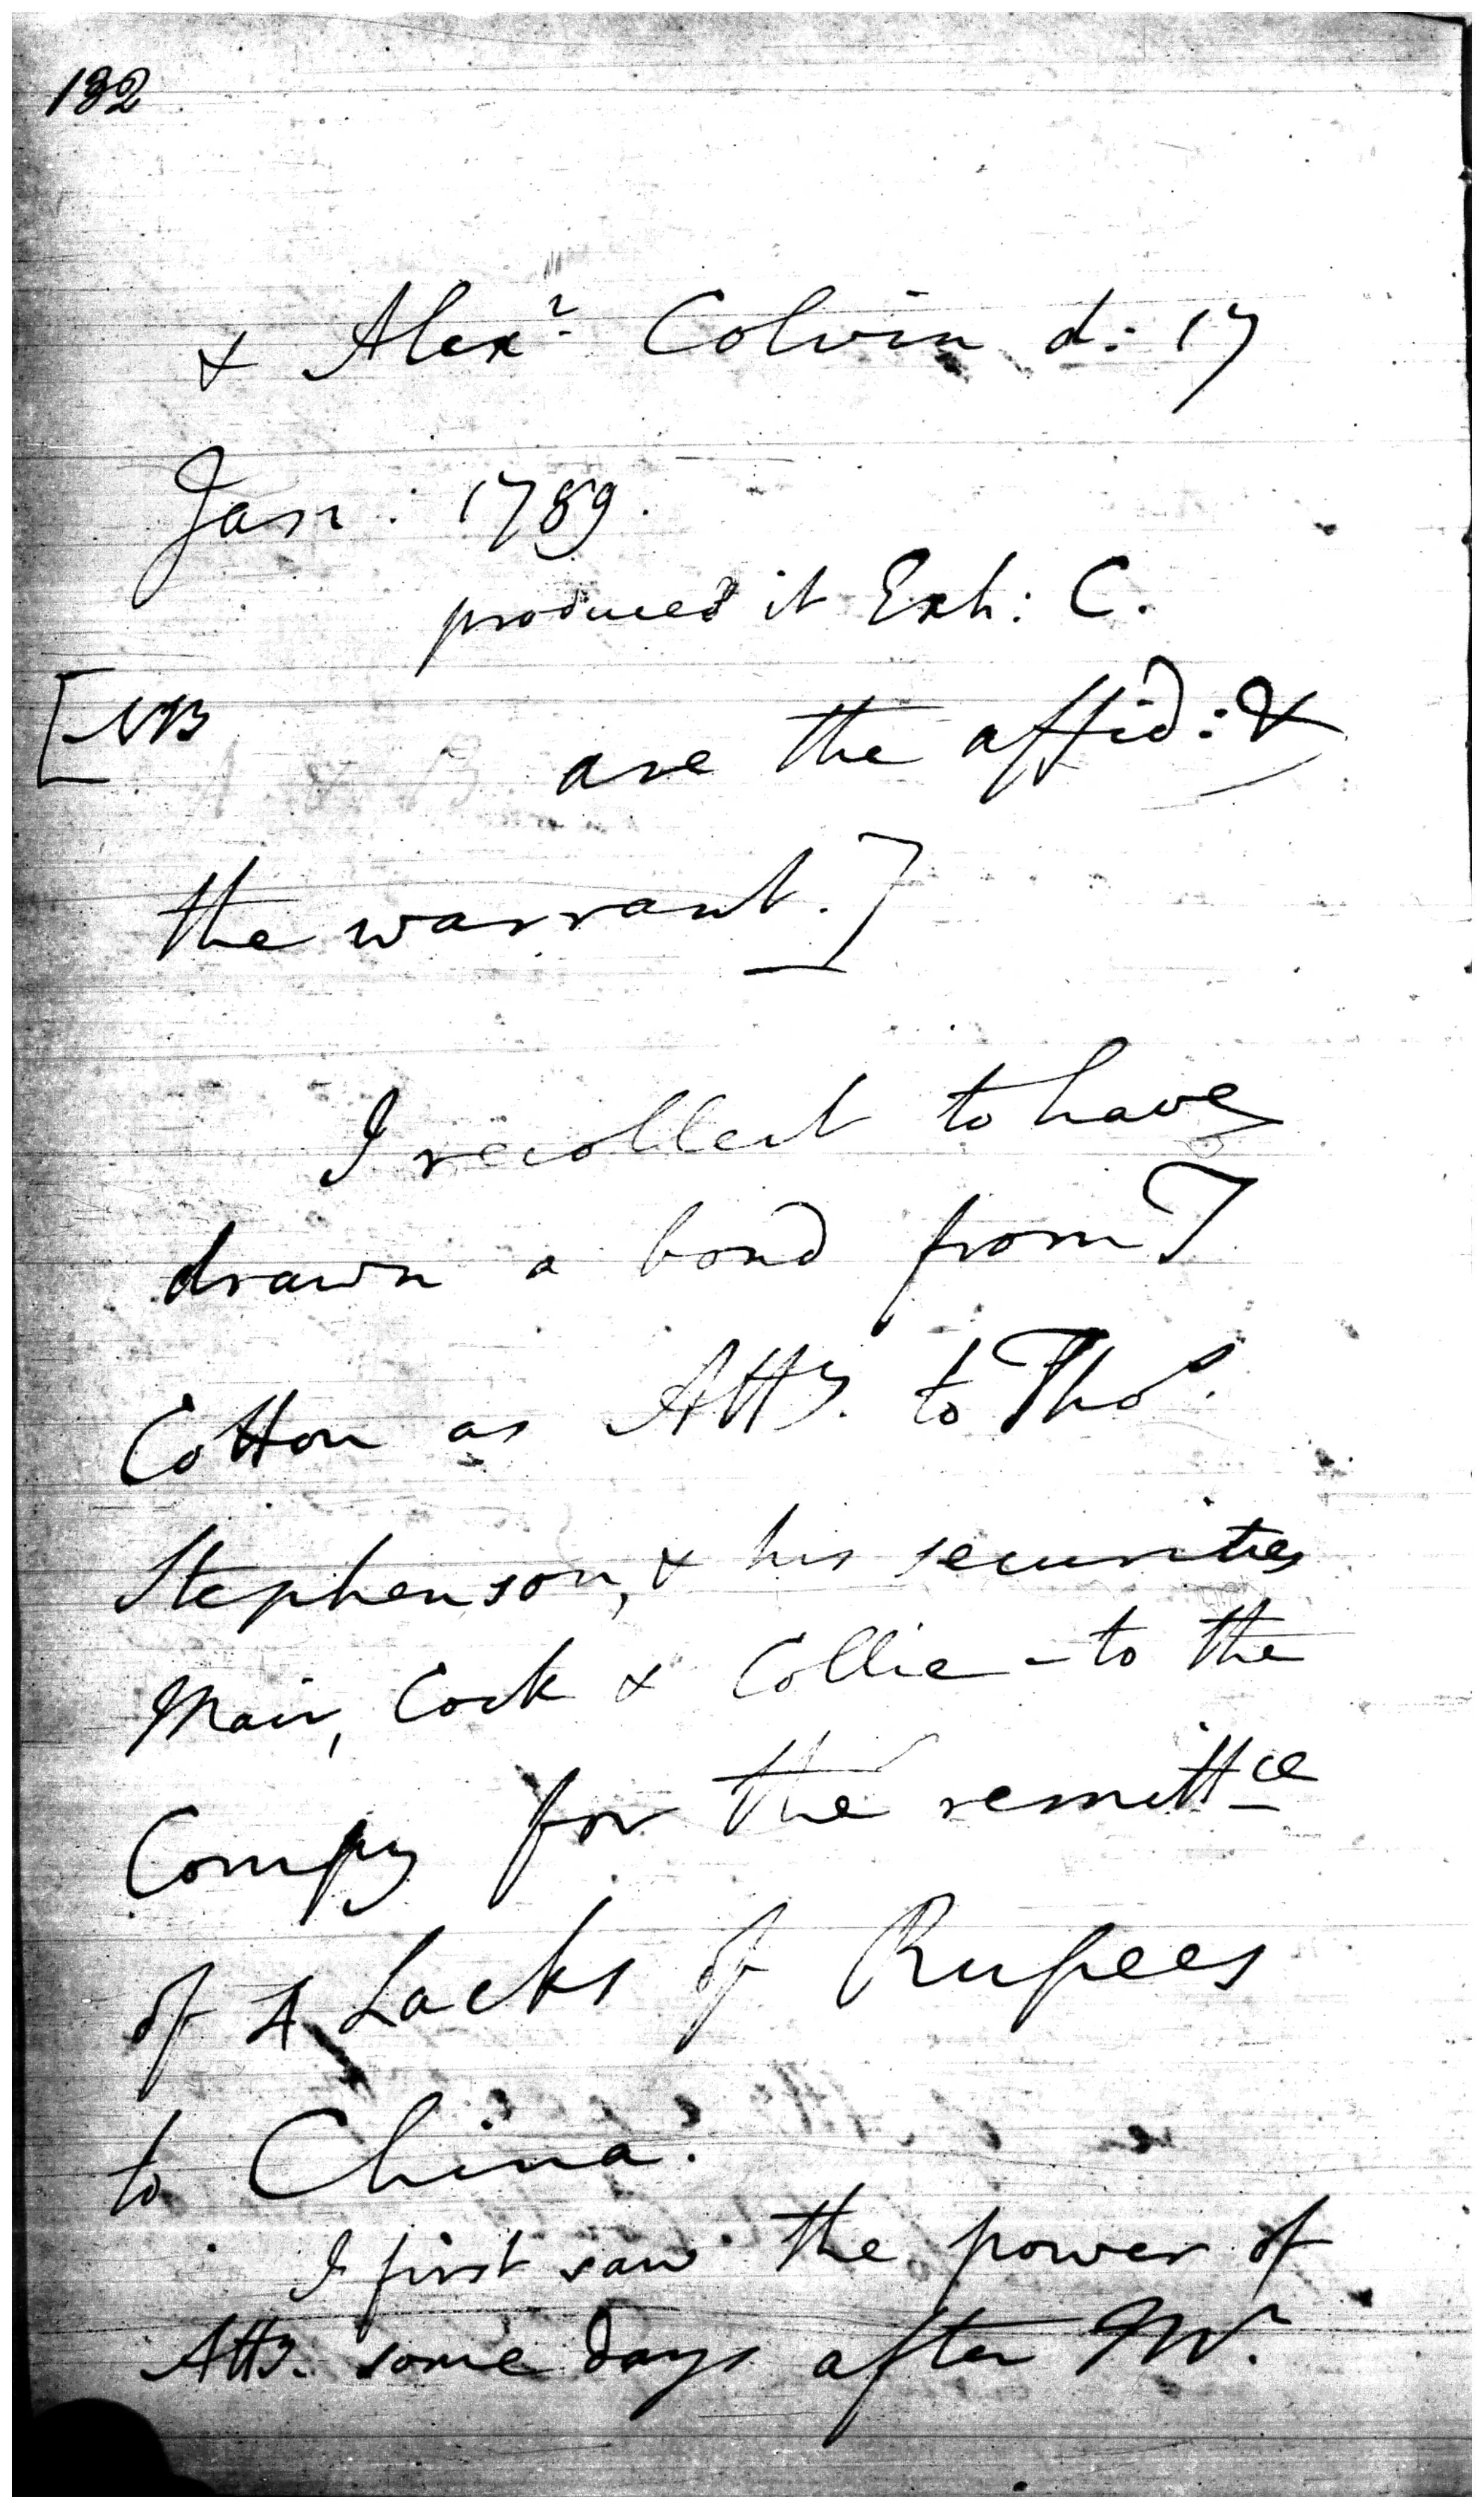 132
& Alexr. Colvin d: 17
Jan: 1789.
produced it Exh: C.
[NB are the affid: &
the warrant.]
I recollect to have
drawn a bond from T
Cotton as Atty. to Thos.
Stephenson, & his securities
Mair, Cock & Collie - to the
Compy for the remittce
of 4 Lacks of Rupees
to China.
I first saw the power of
Atty. some days after Mr.